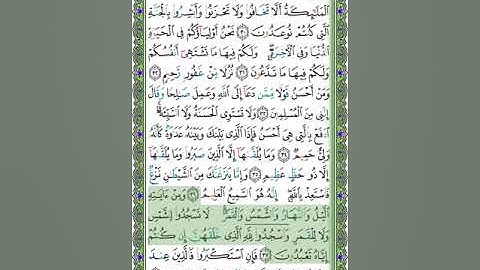 الْمَلَٰٓئِكَةُ أَلَّا تَخَافُوا۟ وَلَا تَحْزَنُوا۟ وَأَبْشِرُوا۟ بِالْجَنَّةِ
الَّتِى كُنتُمْ تُوعَدُونَ ﴿٣٠﴾ نَحْنُ أَوْلِيَآؤُكُمْ فِى الْحَيَوٰةِ
الدُّنْيَا وَفِى الْءَاخِرَةِ ۖ وَلَكُمْ فِيهَا مَا تَشْتَهِىٓ أَنفُسُكُمْ
وَلَكُمْ فِيهَا مَا تَدَّعُونَ ﴿٣١﴾ نُزُلًا مِّنْ غَفُورٍ رَّحِيمٍ ﴿٣٢﴾
وَمَنْ أَحْسَنُ قَوْلًا مِّمَّن دَعَآ إِلَى اللَّهِ وَعَمِلَ صَٰلِحًا وَقَالَ
إِنَّنِى مِنَ الْمُسْلِمِينَ ﴿٣٣﴾ وَلَا تَسْتَوِى الْحَسَنَةُ وَلَا السَّيِّئَةُ ۚ
ادْفَعْ بِالَّتِى هِىَ أَحْسَنُ فَإِذَا الَّذِى بَيْنَكَ وَبَيْنَهُۥ عَدَٰوَةٌ كَأَنَّهُۥ
وَلِىٌّ حَمِيمٌ ﴿٣٤﴾ وَمَا يُلَقَّىٰهَآ إِلَّا الَّذِينَ صَبَرُوا۟ وَمَا يُلَقَّىٰهَآ
إِلَّا ذُو حَظٍّ عَظِيمٍ ﴿٣٥﴾ وَإِمَّا يَنزَغَنَّكَ مِنَ الشَّيْطَٰنِ نَزْغٌ
فَاسْتَعِذْ بِاللَّهِ ۖ إِنَّهُۥ هُوَ السَّمِيعُ الْعَلِيمُ ﴿٣٦﴾ وَمِنْ ءَايَٰتِهِ
الَّيْلُ وَالنَّهَارُ وَالشَّمْسُ وَالْقَمَرُ ۚ لَا تَسْجُدُوا۟ لِلشَّمْسِ
وَلَا لِلْقَمَرِ وَاسْجُدُوا۟ لِلَّهِ الَّذِى خَلَقَهُنَّ إِن كُنتُمْ
إِيَّاهُ تَعْبُدُونَ ﴿٣٧﴾ فَإِنِ اسْتَكْبَرُوا۟ فَالَّذِينَ عِندَ